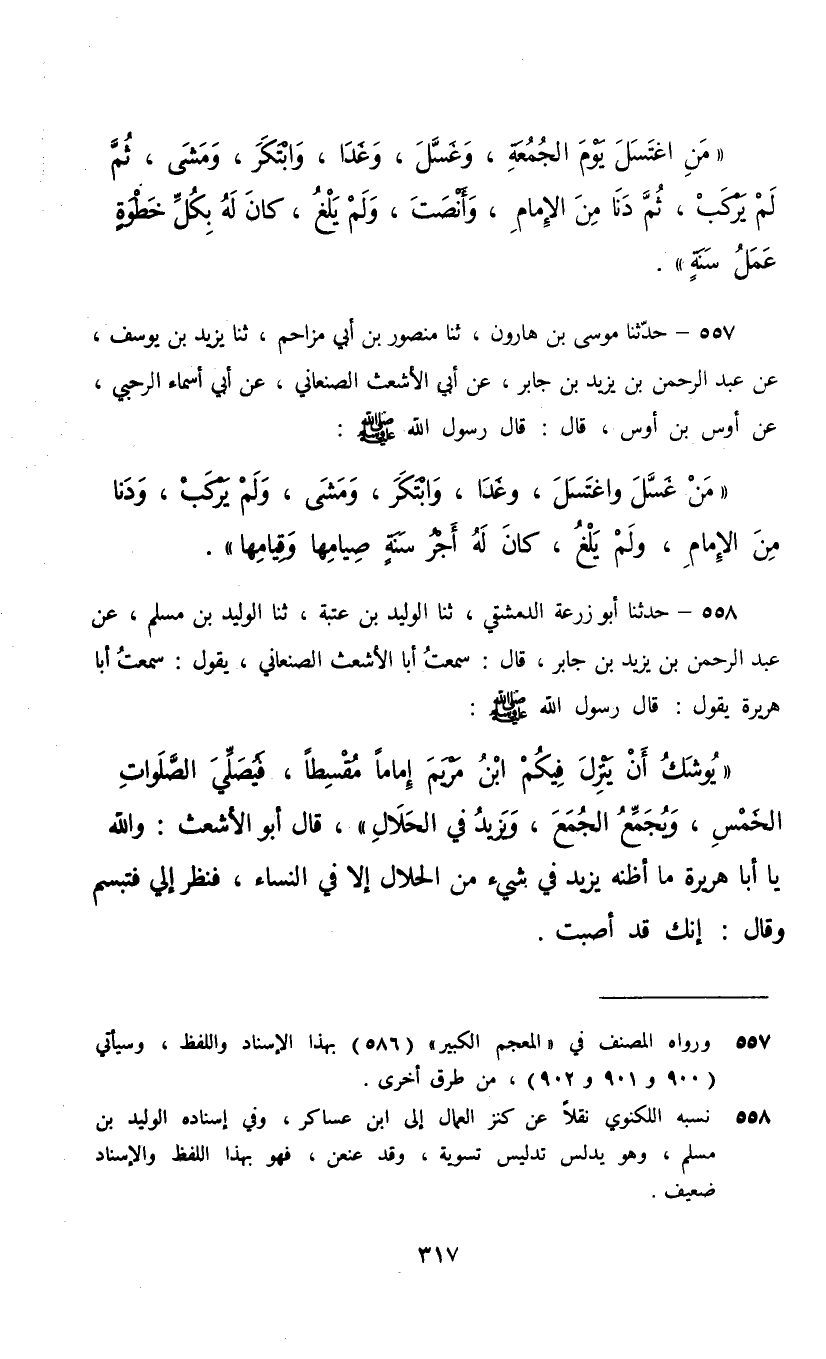 « مَنِ اغتَسَلَ يَوْمَ الجُمُعَةِ ، وَغَسَّلَ ، وَغَدَا ، وَابْتَكَرَ ، وَمَشَى ، ثُمَّ
لَمْ يَرْكَبْ ، ثُمَّ دَنَا مِنَ الإِمامِ ، وَأَنْصَتَ ، وَلَمْ يَلْغُ ، كانَ لَهُ بِكُلِّ خَطْوَةٍ
عَمَلُ سَنَةٍ » .
٥٥٧ – حدّثنا موسى بن هارون ، ثنا منصور بن أبي مزاحم ، ثنا يزيد بن يوسف ،
عن عبد الرحمن بن يزيد بن جابر ، عن أبي الأشعث الصنعاني ، عن أبي أسماء الرحبي ،
عن أوس بن أوس ، قال : قال رسول الله ﷺ :
« مَنْ غَسَّلَ واغتَسَلَ ، وغَدَا ، وَابْتَكَرَ ، وَمَشَى ، وَلَمْ يَرْكَبْ ، وَدَنا
مِنَ الإِمامِ ، ولَمْ يَلْغُ ، كانَ لَهُ أَجْرُ سَنَةٍ صِيامِها وَقِيامِها » .
٥٥٨ – حدثنا أبو زرعة الدمشقي ، ثنا الوليد بن عتبة ، ثنا الوليد بن مسلم ، عن
عبد الرحمن بن يزيد بن جابر ، قال : سمعتُ أبا الأشعث الصنعاني ، يقول : سمعتُ أبا
هريرة يقول : قال رسول الله ﷺ :
« يُوشَكُ أَنْ يَنْزِلَ فِيكُمْ ابْنُ مَرْيَمَ إِماماً مُقْسِطاً ، فَيُصَلِّيَ الصَّلَواتِ
الخَمْسِ ، وَيُجَمِّعُ الجُمَعَ ، وَيَزِيدُ في الحَلَالِ » ، قال أبو الأشعث : والله
يا أبا هريرة ما أظنه يزيد في شيء من الحلال إلا في النساء ، فنظر إلي فتبسم
وقال : إنك قد أصبت .
٥٥٧ ورواه المصنف في «المعجم الكبير» (٥٨٦) بهذا الإسناد واللفظ ، وسيأتي
(٩٠٠ و ٩٠١ و ٩٠٢) ، من طرق أخرى .
٥٥٨ نسبه اللكنوي نقلاً عن كنز العمال إلى ابن عساكر ، وفي إسناده الوليد بن
مسلم ، وهو يدلس تدليس تسوية ، وقد عنعن ، فهو بهذا اللفظ والإسناد
ضعيف .
٣١٧